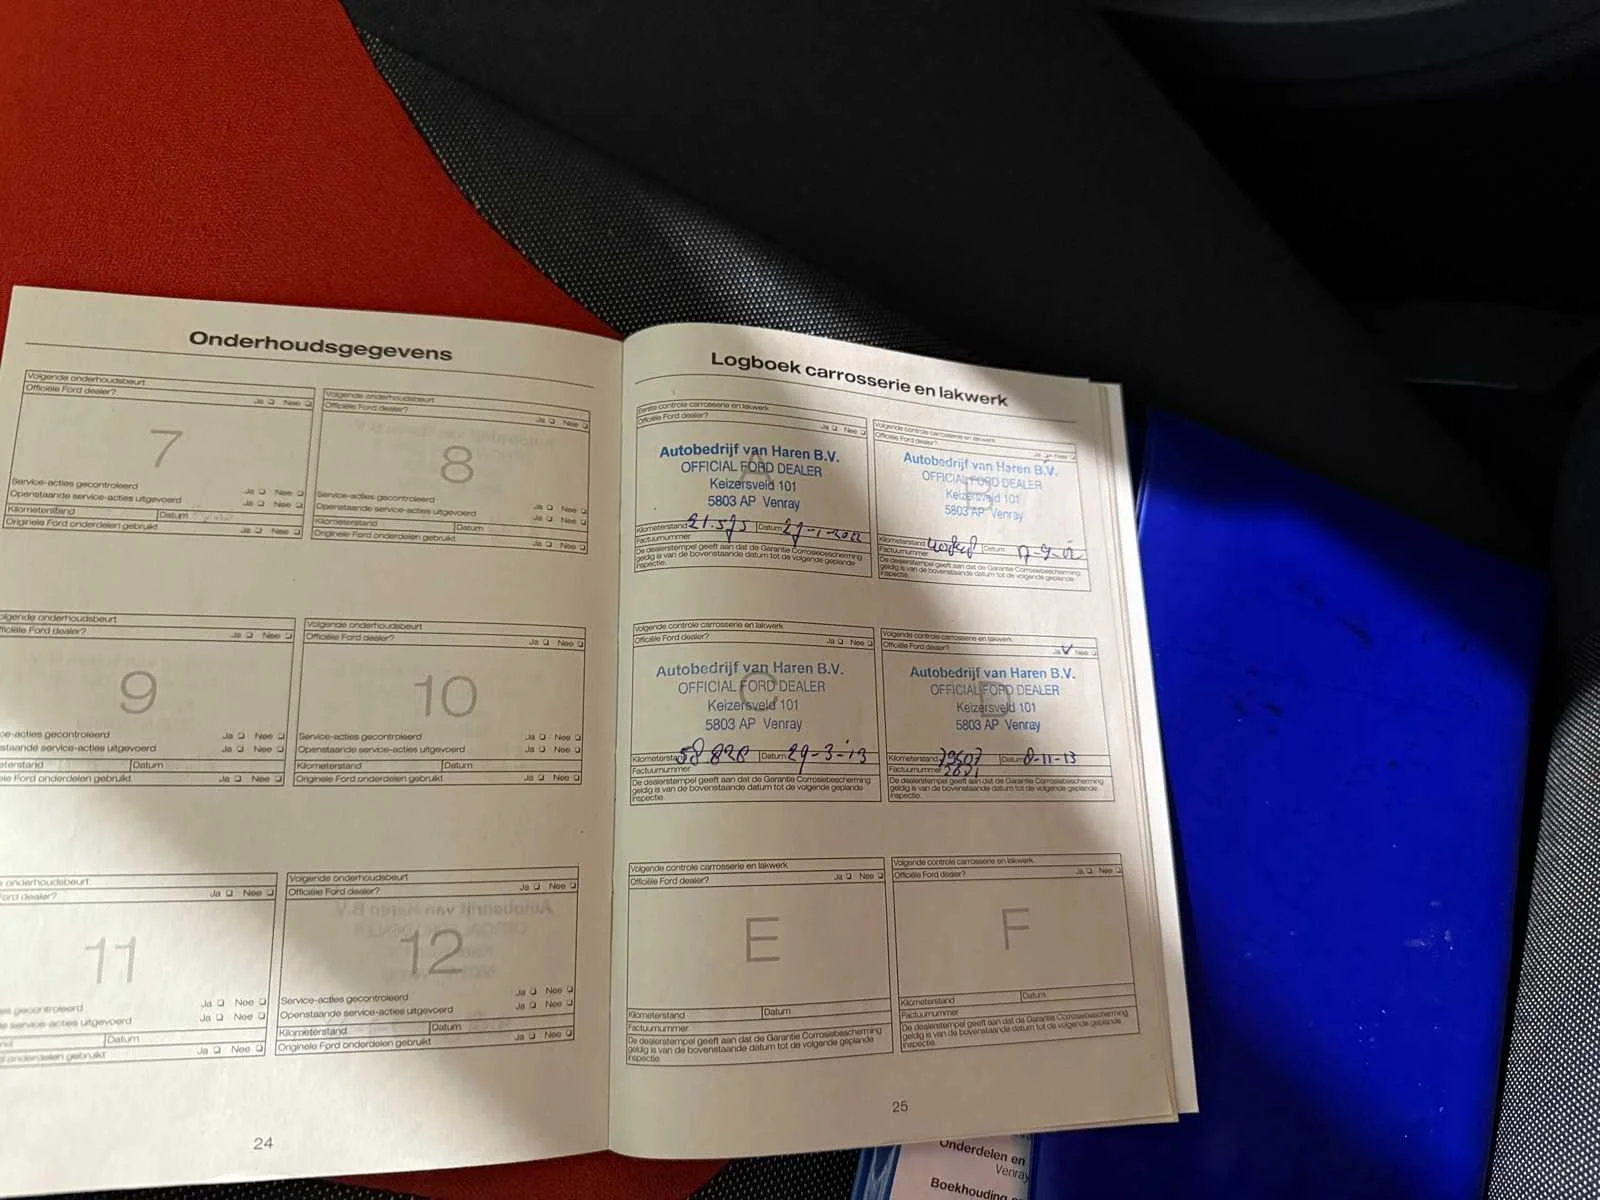 Onderhoudsgegevens
Volgende onderhoudsbeurt
Officiële Ford dealer?
Ja Nee
7
Service-acties gecontroleerd
Ja Nee
Openstaande service-acties uitgevoerd
Ja Nee
Kilometerstand Datum
Originele Ford onderdelen gebruikt
Ja Nee
Volgende onderhoudsbeurt
Officiële Ford dealer?
Ja Nee
8
Service-acties gecontroleerd
Ja Nee
Openstaande service-acties uitgevoerd
Ja Nee
Kilometerstand Datum
Originele Ford onderdelen gebruikt
Ja Nee
olgende onderhoudsbeurt
fficiële Ford dealer?
Ja Nee
9
ce-acties gecontroleerd
Ja Nee
staande service-acties uitgevoerd
Ja Nee
eterstand Datum
ele Ford onderdelen gebruikt
Ja Nee
Volgende onderhoudsbeurt
Officiële Ford dealer?
Ja Nee
10
Service-acties gecontroleerd
Ja Nee
Openstaande service-acties uitgevoerd
Ja Nee
Kilometerstand Datum
Originele Ford onderdelen gebruikt
Ja Nee
e onderhoudsbeurt
Ford dealer?
Ja Nee
11
s gecontroleerd
Ja Nee
e service-acties uitgevoerd
Ja Nee
nd Datum
d onderdelen gebruikt
Ja Nee
Volgende onderhoudsbeurt
Officiële Ford dealer?
Ja Nee
12
Service-acties gecontroleerd
Ja Nee
Openstaande service-acties uitgevoerd
Ja Nee
Kilometerstand Datum
Originele Ford onderdelen gebruikt
Ja Nee
24
Logboek carrosserie en lakwerk
Eerste controle carrosserie en lakwerk
Officiële Ford dealer?
Ja Nee
A
Autobedrijf van Haren B.V.
OFFICIAL FORD DEALER
Keizersveld 101
5803 AP Venray
Kilometerstand 21.575 Datum
Factuurnummer
De dealerstempel geeft aan dat de Garantie Corrosiebescherming
geldig is van de bovenstaande datum tot de volgende geplande
inspectie.
Volgende controle carrosserie en lakwerk
Officiële Ford dealer?
Ja Nee
B
Autobedrijf van Haren B.V.
OFFICIAL FORD DEALER
Keizersveld 101
5803 AP Venray
Kilometerstand Datum
Factuurnummer
De dealerstempel geeft aan dat de Garantie Corrosiebescherming
geldig is van de bovenstaande datum tot de volgende geplande
inspectie.
Volgende controle carrosserie en lakwerk
Officiële Ford dealer?
Ja Nee
C
Autobedrijf van Haren B.V.
OFFICIAL FORD DEALER
Keizersveld 101
5803 AP Venray
Kilometerstand 58.828 Datum 29-3-13
Factuurnummer
De dealerstempel geeft aan dat de Garantie Corrosiebescherming
geldig is van de bovenstaande datum tot de volgende geplande
inspectie.
Volgende controle carrosserie en lakwerk
Officiële Ford dealer?
Ja Nee
D
Autobedrijf van Haren B.V.
OFFICIAL FORD DEALER
Keizersveld 101
5803 AP Venray
Kilometerstand Datum 8-11-13
Factuurnummer
De dealerstempel geeft aan dat de Garantie Corrosiebescherming
geldig is van de bovenstaande datum tot de volgende geplande
inspectie.
Volgende controle carrosserie en lakwerk
Officiële Ford dealer?
Ja Nee
E
Kilometerstand Datum
Factuurnummer
De dealerstempel geeft aan dat de Garantie Corrosiebescherming
geldig is van de bovenstaande datum tot de volgende geplande
inspectie.
Volgende controle carrosserie en lakwerk
Officiële Ford dealer?
Ja Nee
F
Kilometerstand Datum
Factuurnummer
De dealerstempel geeft aan dat de Garantie Corrosiebescherming
geldig is van de bovenstaande datum tot de volgende geplande
inspectie.
25
Onderdelen en
Venray
Boekhouding